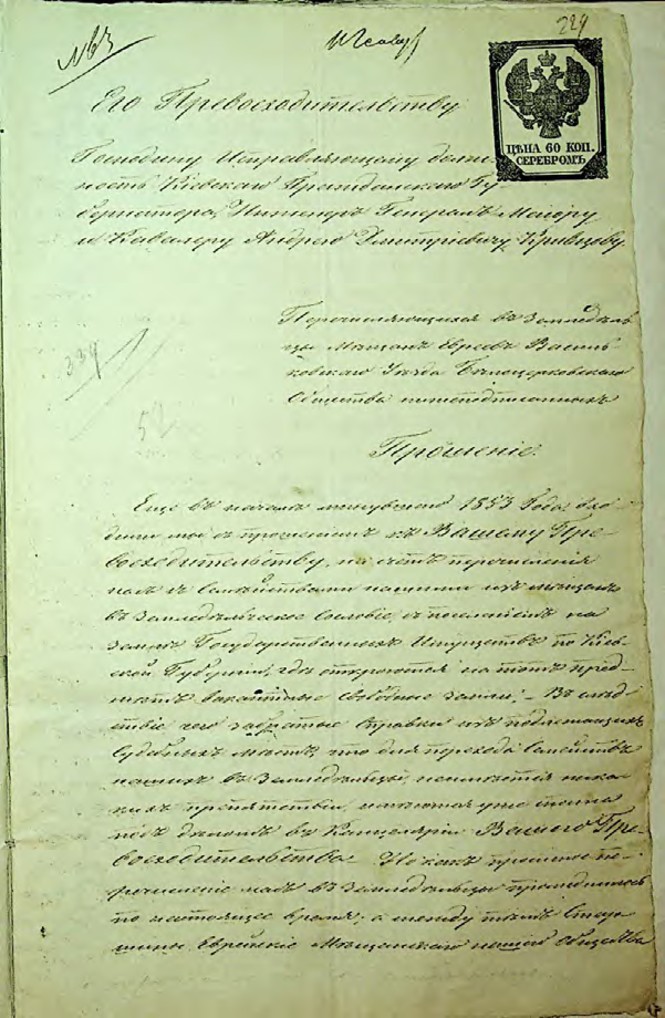 №63
229
ЦѢНА 60 КОП.
СЕРЕБРОМЪ
Его Превосходительству
Господину Исправляющему долж-
ность Кіевскаго Гражданскаго Гу-
бернатора, Инженеръ Генералъ Маіору
и Кавалеру Андрею Дмитріевичу Кривцову.
Перечисляющихся въ Земледѣль-
цы Мѣщанъ Евреевъ Василь-
ковскаго Уѣзда Бѣлоцерковскаго
Общества нижеподписанныхъ
Прошеніе.
334
52
Еще въ началѣ минувшаго 1853 Года вхо-
дили мы съ прошеніемъ къ Вашему Пре-
восходительству, на счетъ перечисленія
насъ съ Семействами нашими изъ мѣщанъ
въ Земледѣльческое Сословіе, съ поселеніемъ на
земляхъ Государственныхъ Имуществъ по Кіев-
ской Губерніи, гдѣ откроются на тотъ пред-
метъ свободные земли; Въ слѣд-
ствіе чего забратые справки изъ подлежащихъ
Судебныхъ мѣстъ, что для перехода Семействъ
нашихъ въ Земледѣльцы, неимѣется ника-
кихъ препятствій, имѣются уже
дѣломъ въ Канцеляріи Вашего Пре-
восходительства. Но какъ прошеніе пе-
речисленіе насъ въ Земледѣльцы промедлилось
по настоящее время, а между тѣмъ Стар-
шины Еврейскіе Мѣщанскаго нашего Общества